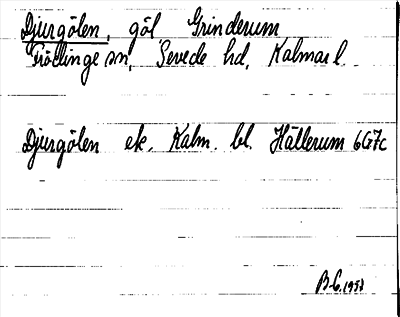 Djurgölen, göl Grinderum
Frödinge sn, Sevede hd, Kalmar l.
Djurgölen ek. Kalm. bl. Hällerum 6G7c
B.C. 1953